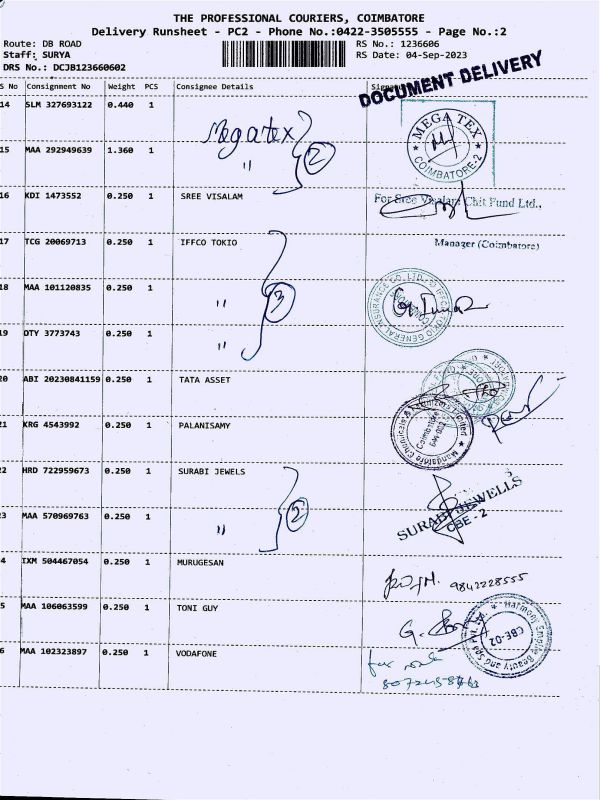 THE PROFESSIONAL COURIERS, COIMBATORE
Delivery Runsheet - PC2 - Phone No.:0422-3505555 - Page No.:2
Route: DB ROAD
RS No.: 1236606
Staff: SURYA
RS Date: 04-Sep-2023
DRS No.: DCJB123660602
DOCUMENT DELIVERY
S No Consignment No Weight PCS Consignee Details
14 SLM 327693122 0.440 1
Megatex
MEGA TEX
COIMBATORE-2
15 MAA 292949639 1.360 1 " 2
16 KDI 1473552 0.250 1 SREE VISALAM
For Sree Visalam Chit Fund Ltd.,
17 TCG 20069713 0.250 1 IFFCO TOKIO
Manager (Coimbatore)
18 MAA 101120835 0.250 1 " 3
19 DTY 3773743 0.250 1 "
20 ABI 20230841159 0.250 1 TATA ASSET
21 KRG 4543992 0.250 1 PALANISAMY
Coimbatore
22 HRD 722959673 0.250 1 SURABI JEWELS
3 MAA 570969763 0.250 1 " 2
SURABI JEWELLS
CBE - 2
4 IXM 504467054 0.250 1 MURUGESAN
9842228555
5 MAA 106063599 0.250 1 TONI GUY
CBE-02
6 MAA 102323897 0.250 1 VODAFONE